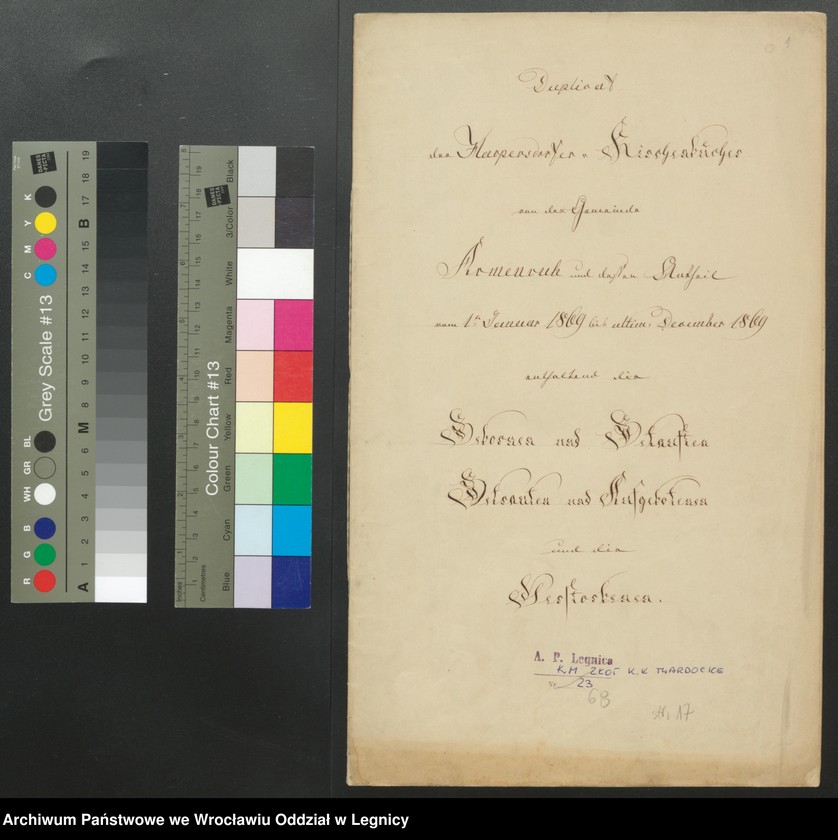 Duplicat
der Harpersdorfer Kirchenbücher
von der Gemeinde
Armenruh und dessen Antheil
vom 1ten Januar 1869 bis ultimo December 1869
enthaltend die
Geborenen und Getauften
Getrauten und Aufgebotenen
und die
Verstorbenen.
A. P. Legnica
K.M. ZŁOT K.K. TWARDOCICE
Nr 23
68
str. 17
Grey Scale #13
R G B WH GR BL C M Y K
A 1 2 3 4 5 6 M 8 9 10 11 12 13 14 15 B 17 18 19
DANES PICTA
Colour Chart #13
Blue Cyan Green Yellow Red Magenta White 3/Color Black
Inches
Centimetres
DANES PICTA
Archiwum Państwowe we Wrocławiu Oddział w Legnicy